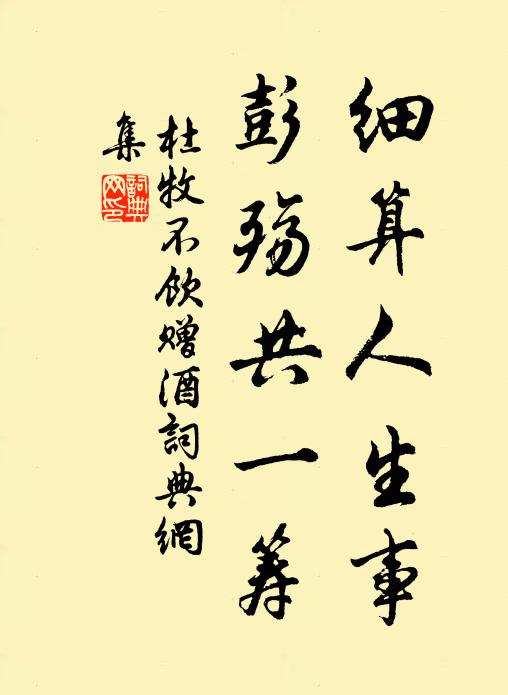 细算人生事
彭殇共一筹
杜牧不飲赠酒詞典網
集
詞典网印